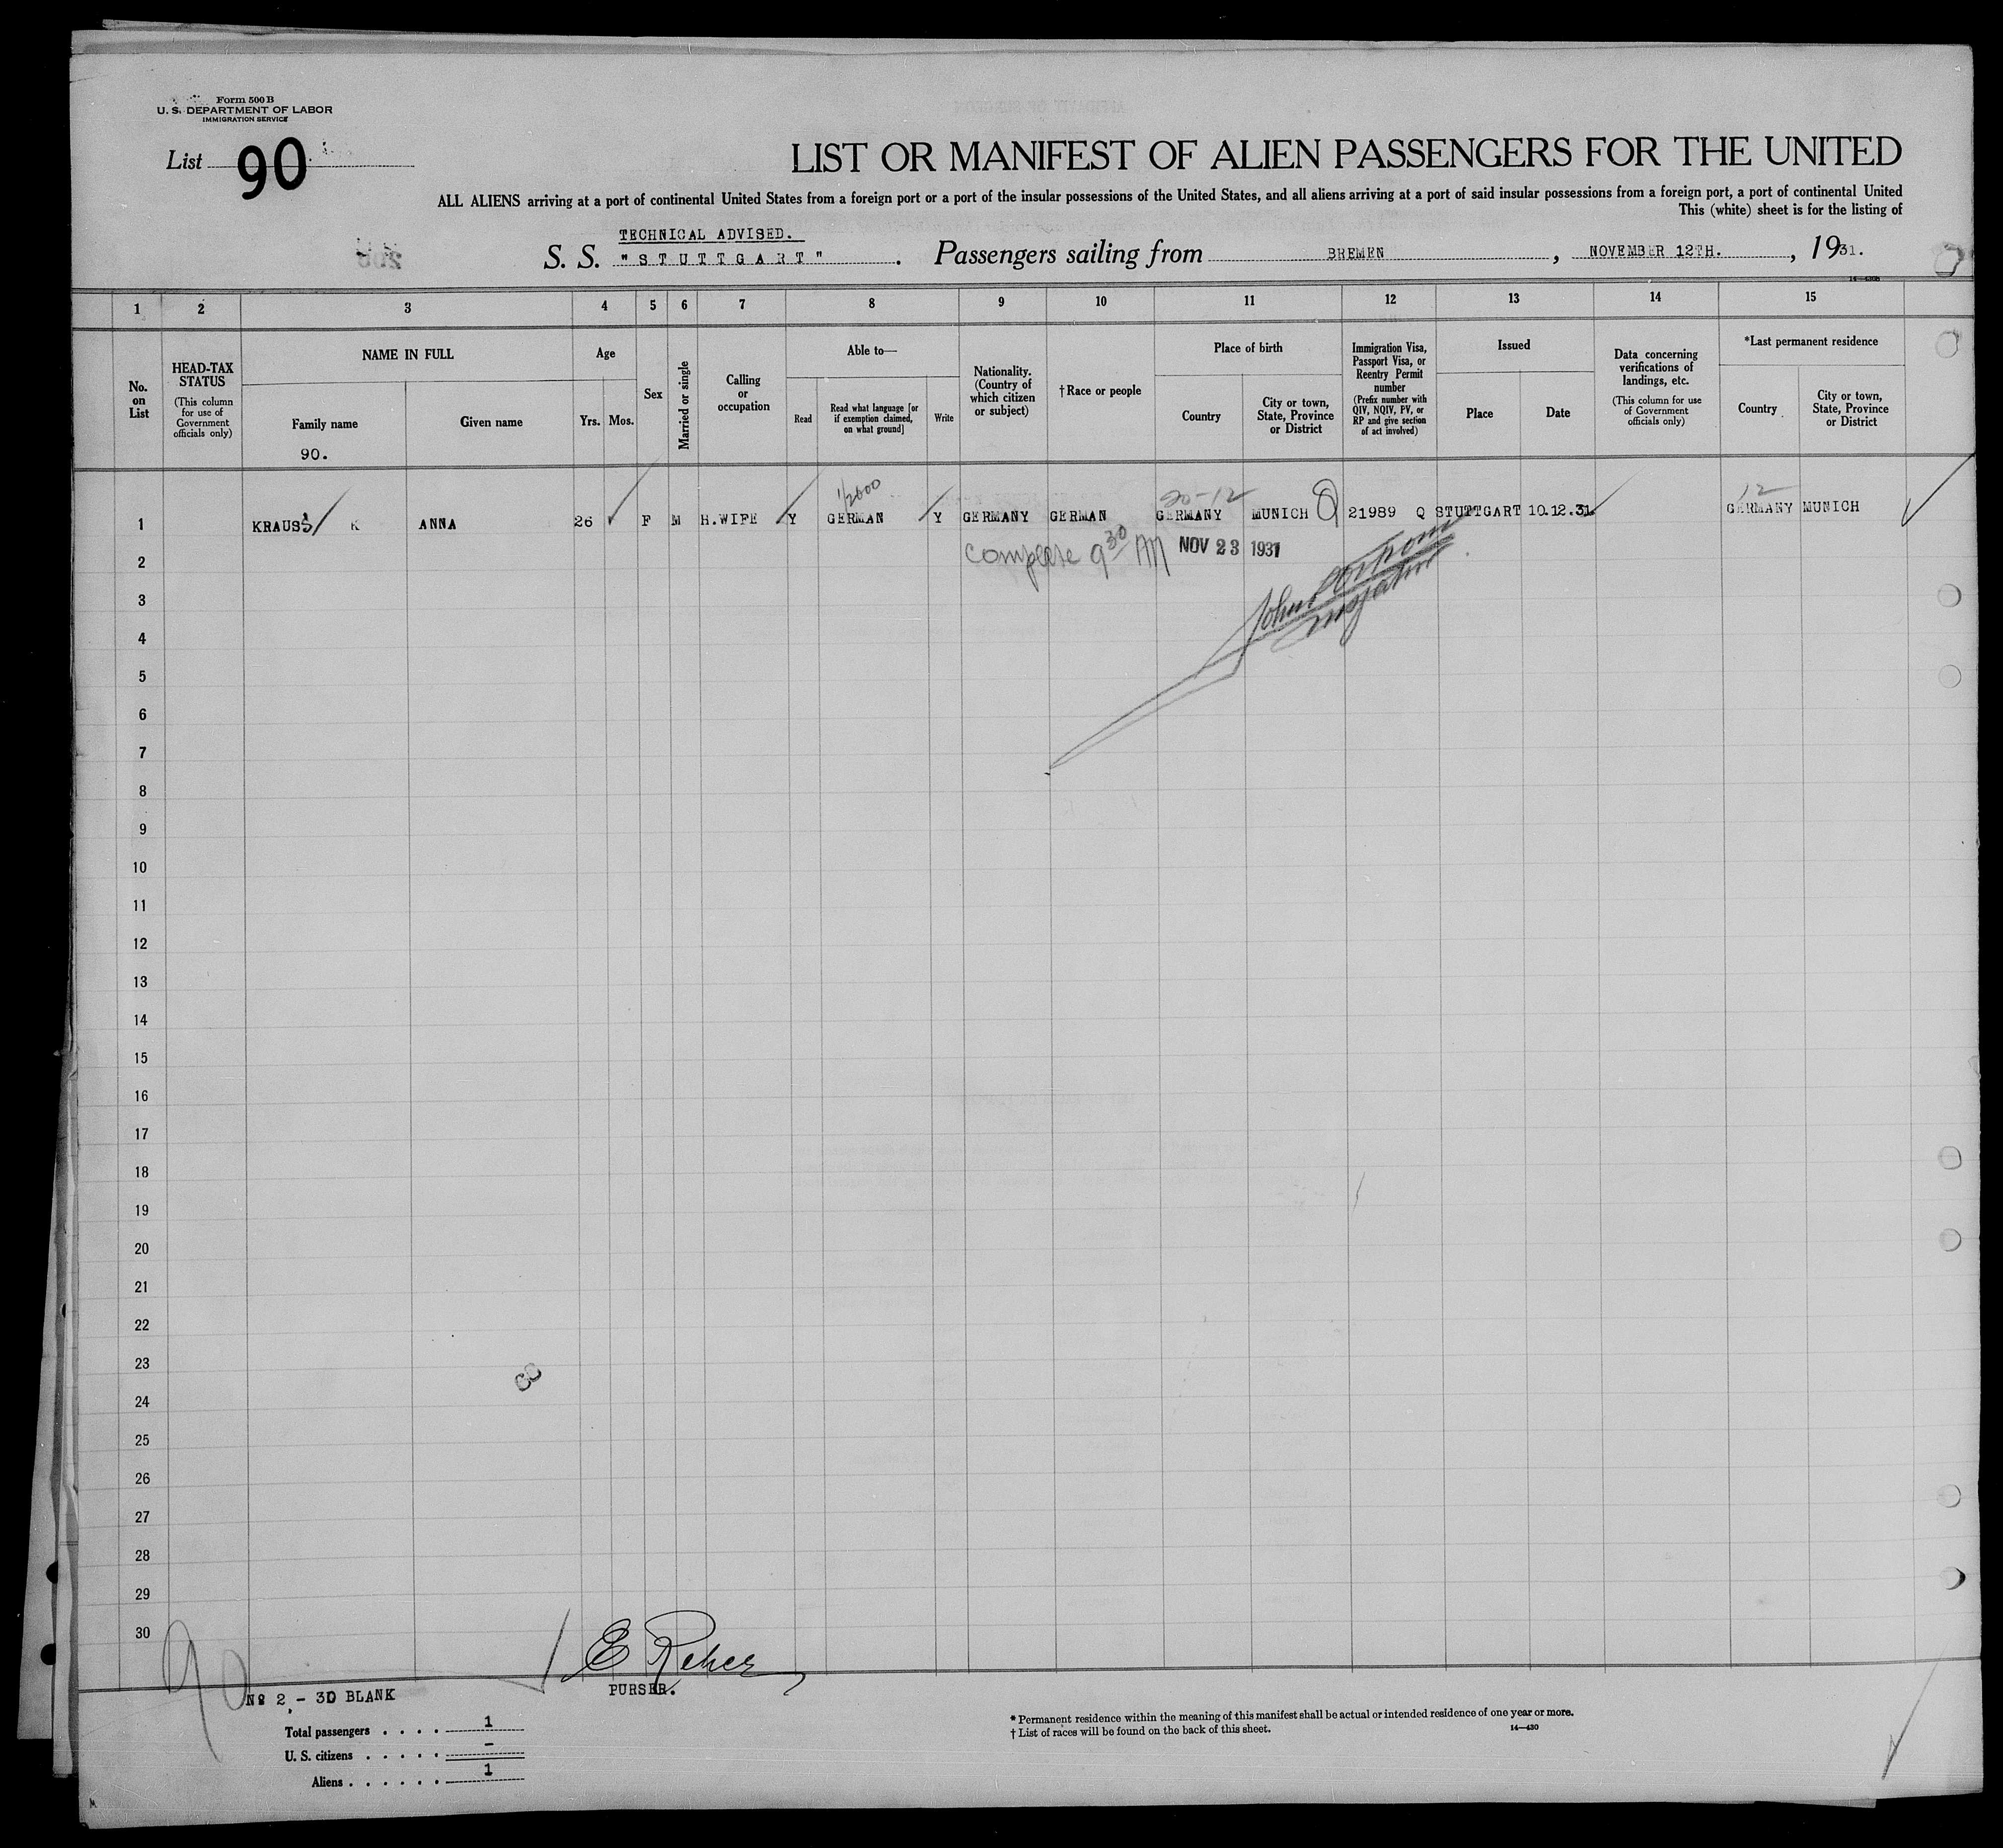 Form 500 B
U. S. DEPARTMENT OF LABOR
IMMIGRATION SERVICE
List 90
LIST OR MANIFEST OF ALIEN PASSENGERS FOR THE UNITED
ALL ALIENS arriving at a port of continental United States from a foreign port or a port of the insular possessions of the United States, and all aliens arriving at a port of said insular possessions from a foreign port, a port of continental United
This (white) sheet is for the listing of
TECHNICAL ADVISED.
S. S. "STUTTGART" . Passengers sailing from BREMEN , NOVEMBER 12TH. , 1931.
1 2 3 4 5 6 7 8 9 10 11 12 13 14 15
No. on List
HEAD-TAX STATUS (This column for use of Government officials only)
NAME IN FULL
Family name
90.
Given name
Age
Yrs. Mos.
Sex
Married or single
Calling or occupation
Able to—
Read
Read what language [or if exemption claimed, on what ground]
Write
Nationality. (Country of which citizen or subject)
†Race or people
Place of birth
Country
City or town, State, Province or District
Immigration Visa, Passport Visa, or Reentry Permit number (Prefix number with QIV, NQIV, PV, or RP and give section of act involved)
Issued
Place
Date
Data concerning verifications of landings, etc. (This column for use of Government officials only)
*Last permanent residence
Country
City or town, State, Province or District
20-12 12
1 KRAUSS K ANNA 26 F M H.WIFE Y GERMAN Y GERMANY GERMAN GERMANY MUNICH 21989 Q STUTTGART 10.12.31 GERMANY MUNICH
2 NOV 23 1931
3
4
5
6
7
8
9
10
11
12
13
14
15
16
17
18
19
20
21
22
23
24
25
26
27
28
29
30
90
E Reher
PURSER.
No 2 - 30 BLANK
Total passengers . . . . 1
U. S. citizens . . . . . -
Aliens . . . . . . 1
* Permanent residence within the meaning of this manifest shall be actual or intended residence of one year or more.
† List of races will be found on the back of this sheet.
14—430